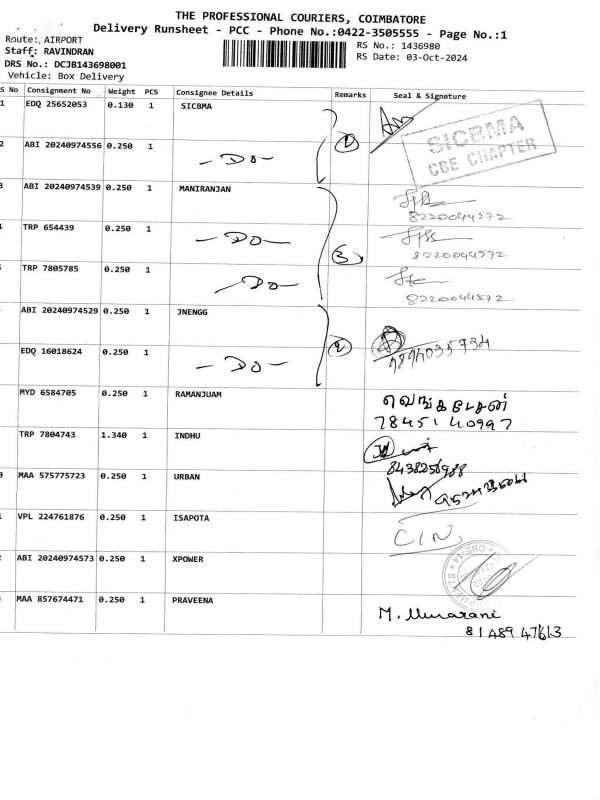 THE PROFESSIONAL COURIERS, COIMBATORE
Delivery Runsheet - PCC - Phone No.:0422-3505555 - Page No.:1
Route: AIRPORT
RS No.: 1436980
Staff: RAVINDRAN
RS Date: 03-Oct-2024
DRS No.: DCJB143698001
Vehicle: Box Delivery
S No Consignment No Weight PCS Consignee Details Remarks Seal & Signature
1 EDQ 25652053 0.130 1 SICBMA
SICBMA
CBE CHAPTER
2 ABI 20240974556 0.250 1 - Do -
3 ABI 20240974539 0.250 1 MANIRANJAN
8220044572
TRP 654439 0.250 1 - Do - 3
8220044572
TRP 7805785 0.250 1 - Do -
8220044572
ABI 20240974529 0.250 1 JNENGG
2
EDQ 16018624 0.250 1 - Do -
MYD 6584705 0.250 1 RAMANJUAM
வெங்கடேசன்
78451 40997
TRP 7804743 1.340 1 INDHU
8438256988
0 MAA 575775723 0.250 1 URBAN
1 VPL 224761876 0.250 1 ISAPOTA
2 ABI 20240974573 0.250 1 XPOWER
MAA 857674471 0.250 1 PRAVEENA
81489 47613